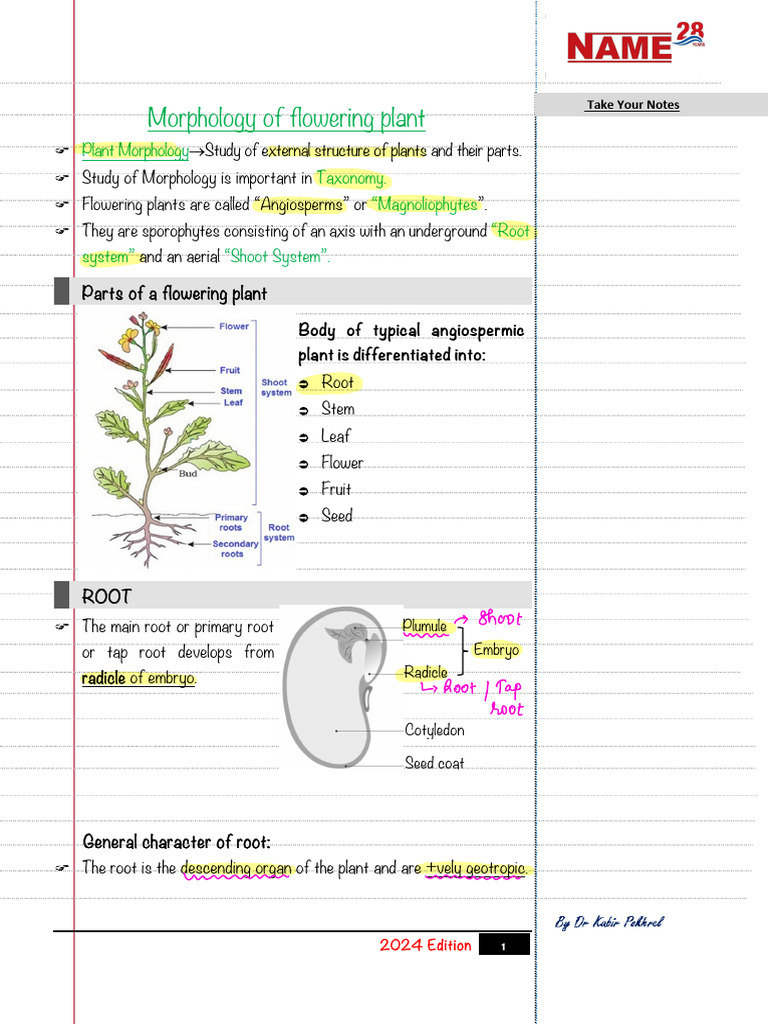 NAME 28
YEARS
Take Your Notes
Morphology of flowering plant
Plant Morphology→Study of external structure of plants and their parts.
Study of Morphology is important in Taxonomy.
Flowering plants are called “Angiosperms” or “Magnoliophytes”.
They are sporophytes consisting of an axis with an underground “Root
system” and an aerial “Shoot System”.
Parts of a flowering plant
Flower
Fruit
Stem
Leaf
Shoot
system
Bud
Primary
roots
Secondary
roots
Root
system
Body of typical angiospermic
plant is differentiated into:
➲ Root
➲ Stem
➲ Leaf
➲ Flower
➲ Fruit
➲ Seed
ROOT
The main root or primary root
or tap root develops from
radicle of embryo.
Plumule → Shoot
Embryo
Radicle
↳ Root / Tap
root
Cotyledon
Seed coat
General character of root:
The root is the descending organ of the plant and are +vely geotropic.
By Dr Kabir Pokhrel
2024 Edition 1